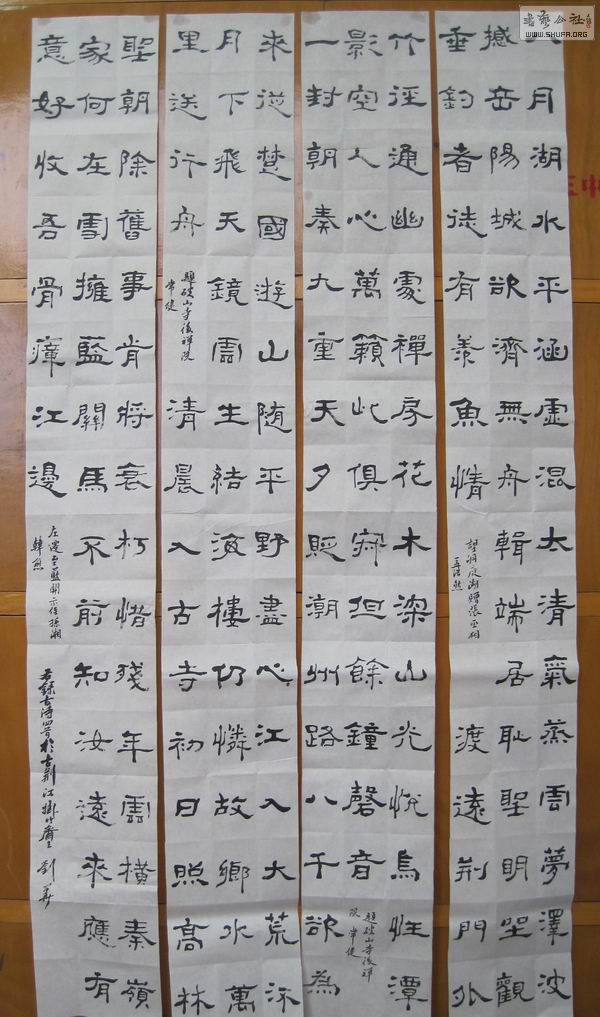 書藝公社
WWW.SHUFA.ORG
八月湖水平涵虛混太清氣蒸雲夢澤波
撼岳陽城欲濟無舟輯端居恥聖明坐觀
垂釣者徒有羨魚情
望洞庭湖贈張丞相
孟浩然
渡遠荊門外
竹徑通幽處禪房花木深山光悅鳥性潭
影空人心萬籟此俱寂但餘鐘磬音
題破山寺後禪
院 常建
一封朝奏九重天夕貶潮州路八千欲為
來從楚國遊山隨平野盡心江入大荒流
月下飛天鏡雲生結海樓仍憐故鄉水萬
里送行舟
題破山寺後禪院
常建
清晨入古寺初日照高林
聖朝除舊事肯將衰朽惜殘年雲橫秦嶺
家何在雪擁藍關馬不前知汝遠來應有
意好收吾骨瘴江邊
左遷至藍關示侄孫湘
韓愈
錄古詩四首於古荊江掛 齋 劉